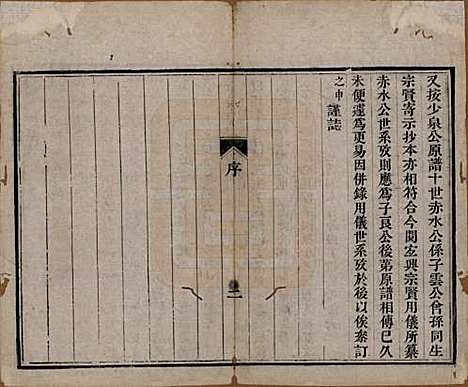 又按少泉公原譜十世赤水公係子雲公會孫同生
宗賢寄示抄本亦相符合今閱宏興宗賢用儀所纂
赤水公世系攷則應為子良公後第原譜相傳已久
未便遽為更易因併錄用儀世系攷於後以俟叅訂
之申謹誌
序
二